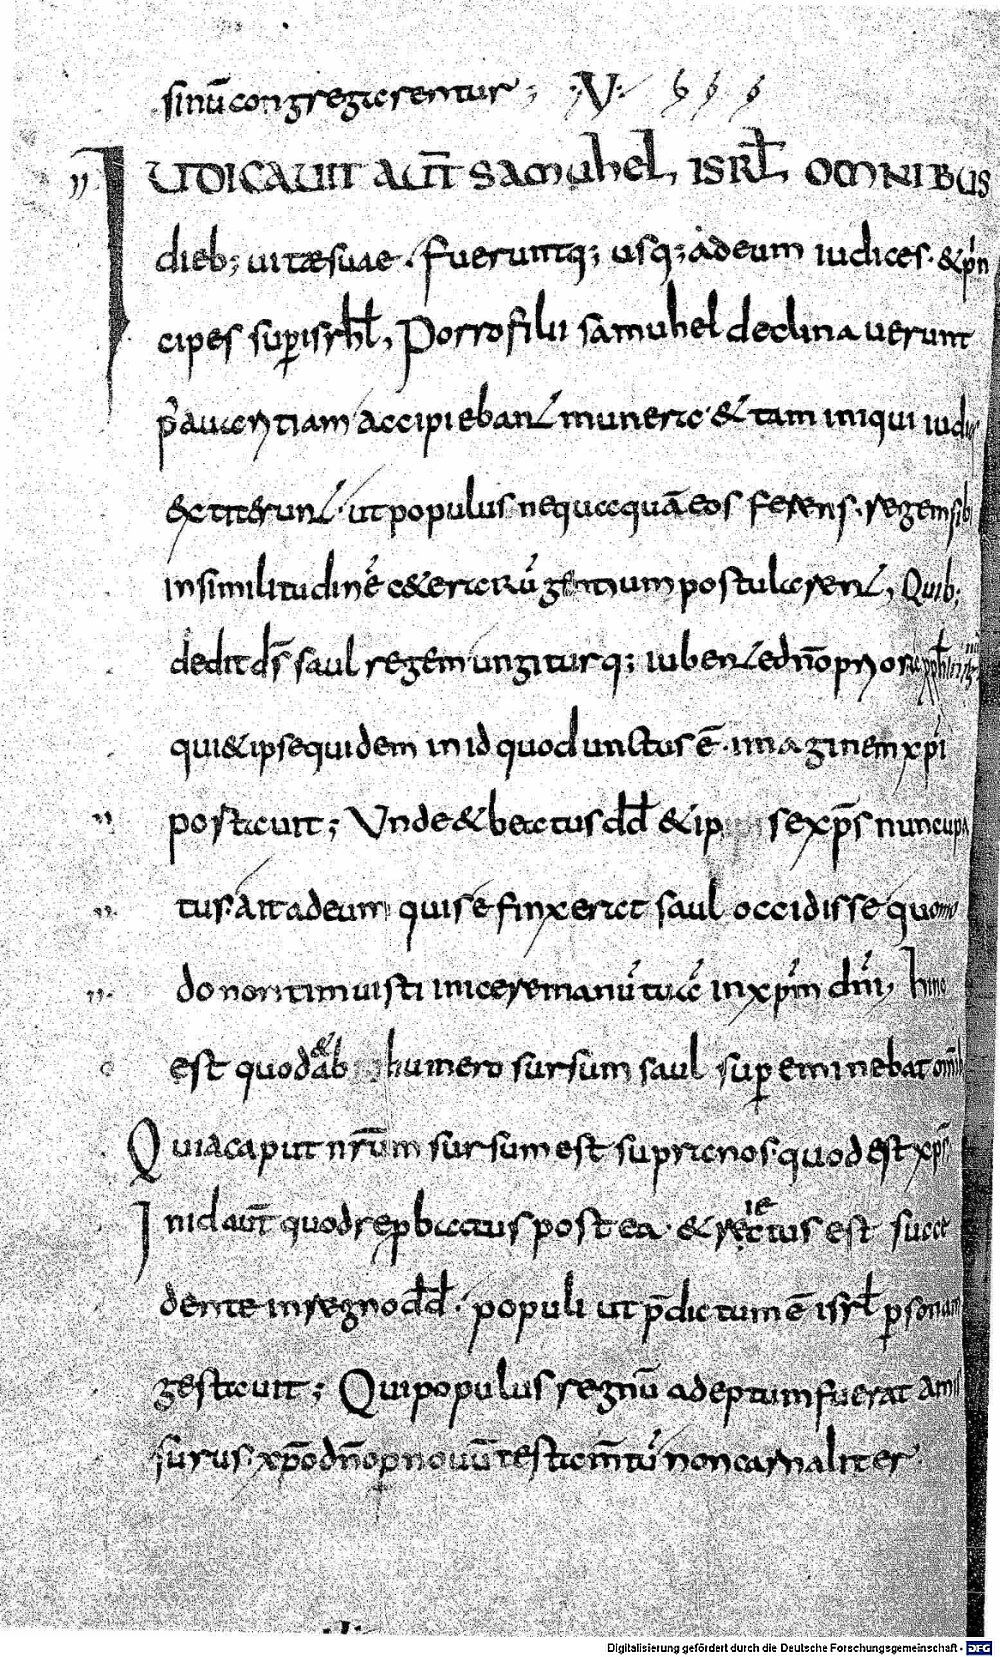 sinū congregarentur; ·V·
IUDICAUIT AUT̄ SAMUHEL, ISRL̄, OMNIBUS
dieb; uitæ suae. fueruntq; usq; ad eum iudices. & prin
cipes sup̱ isrhl̄, Porro filii samuhel declinauerunt
p̱ auaritiam accipiebant munera. & tam iniqui iudi
extiterunt. ut populus nequaquā eos ferens. regem sibi
in similitudinē c&erarū gentium postularent, Quib;
dedit ds̄ saul regem ungiturq; iubente dn̄o
qui & ipse quidem in id quod unctus ē. imaginem xp̄i
portauit; Unde & beatus dd̄ & ip se xp̄s nuncupa
tus. ait ad eum qui se finxerat saul occidisse quomo
do non timuisti inicere manū tuā in xp̄m dn̄i, hinc
est quod & ab humero sursum saul sup̱eminebat omnib
Quia caput nr̄um sursum est supra nos. quod est xp̄s
In id aut̄ quod reprobatus postea. & rectius est succe
dente in regno dd̄. populi ut p̄dictum ē isrl̄ p̱sonam
gestauit; Qui populus regnū adeptum fuerat amis
surus. xp̄o dn̄o p̱ nouū testam̄tū non carnaliter
Digitalisierung gefördert durch die Deutsche Forschungsgemeinschaft - DFG